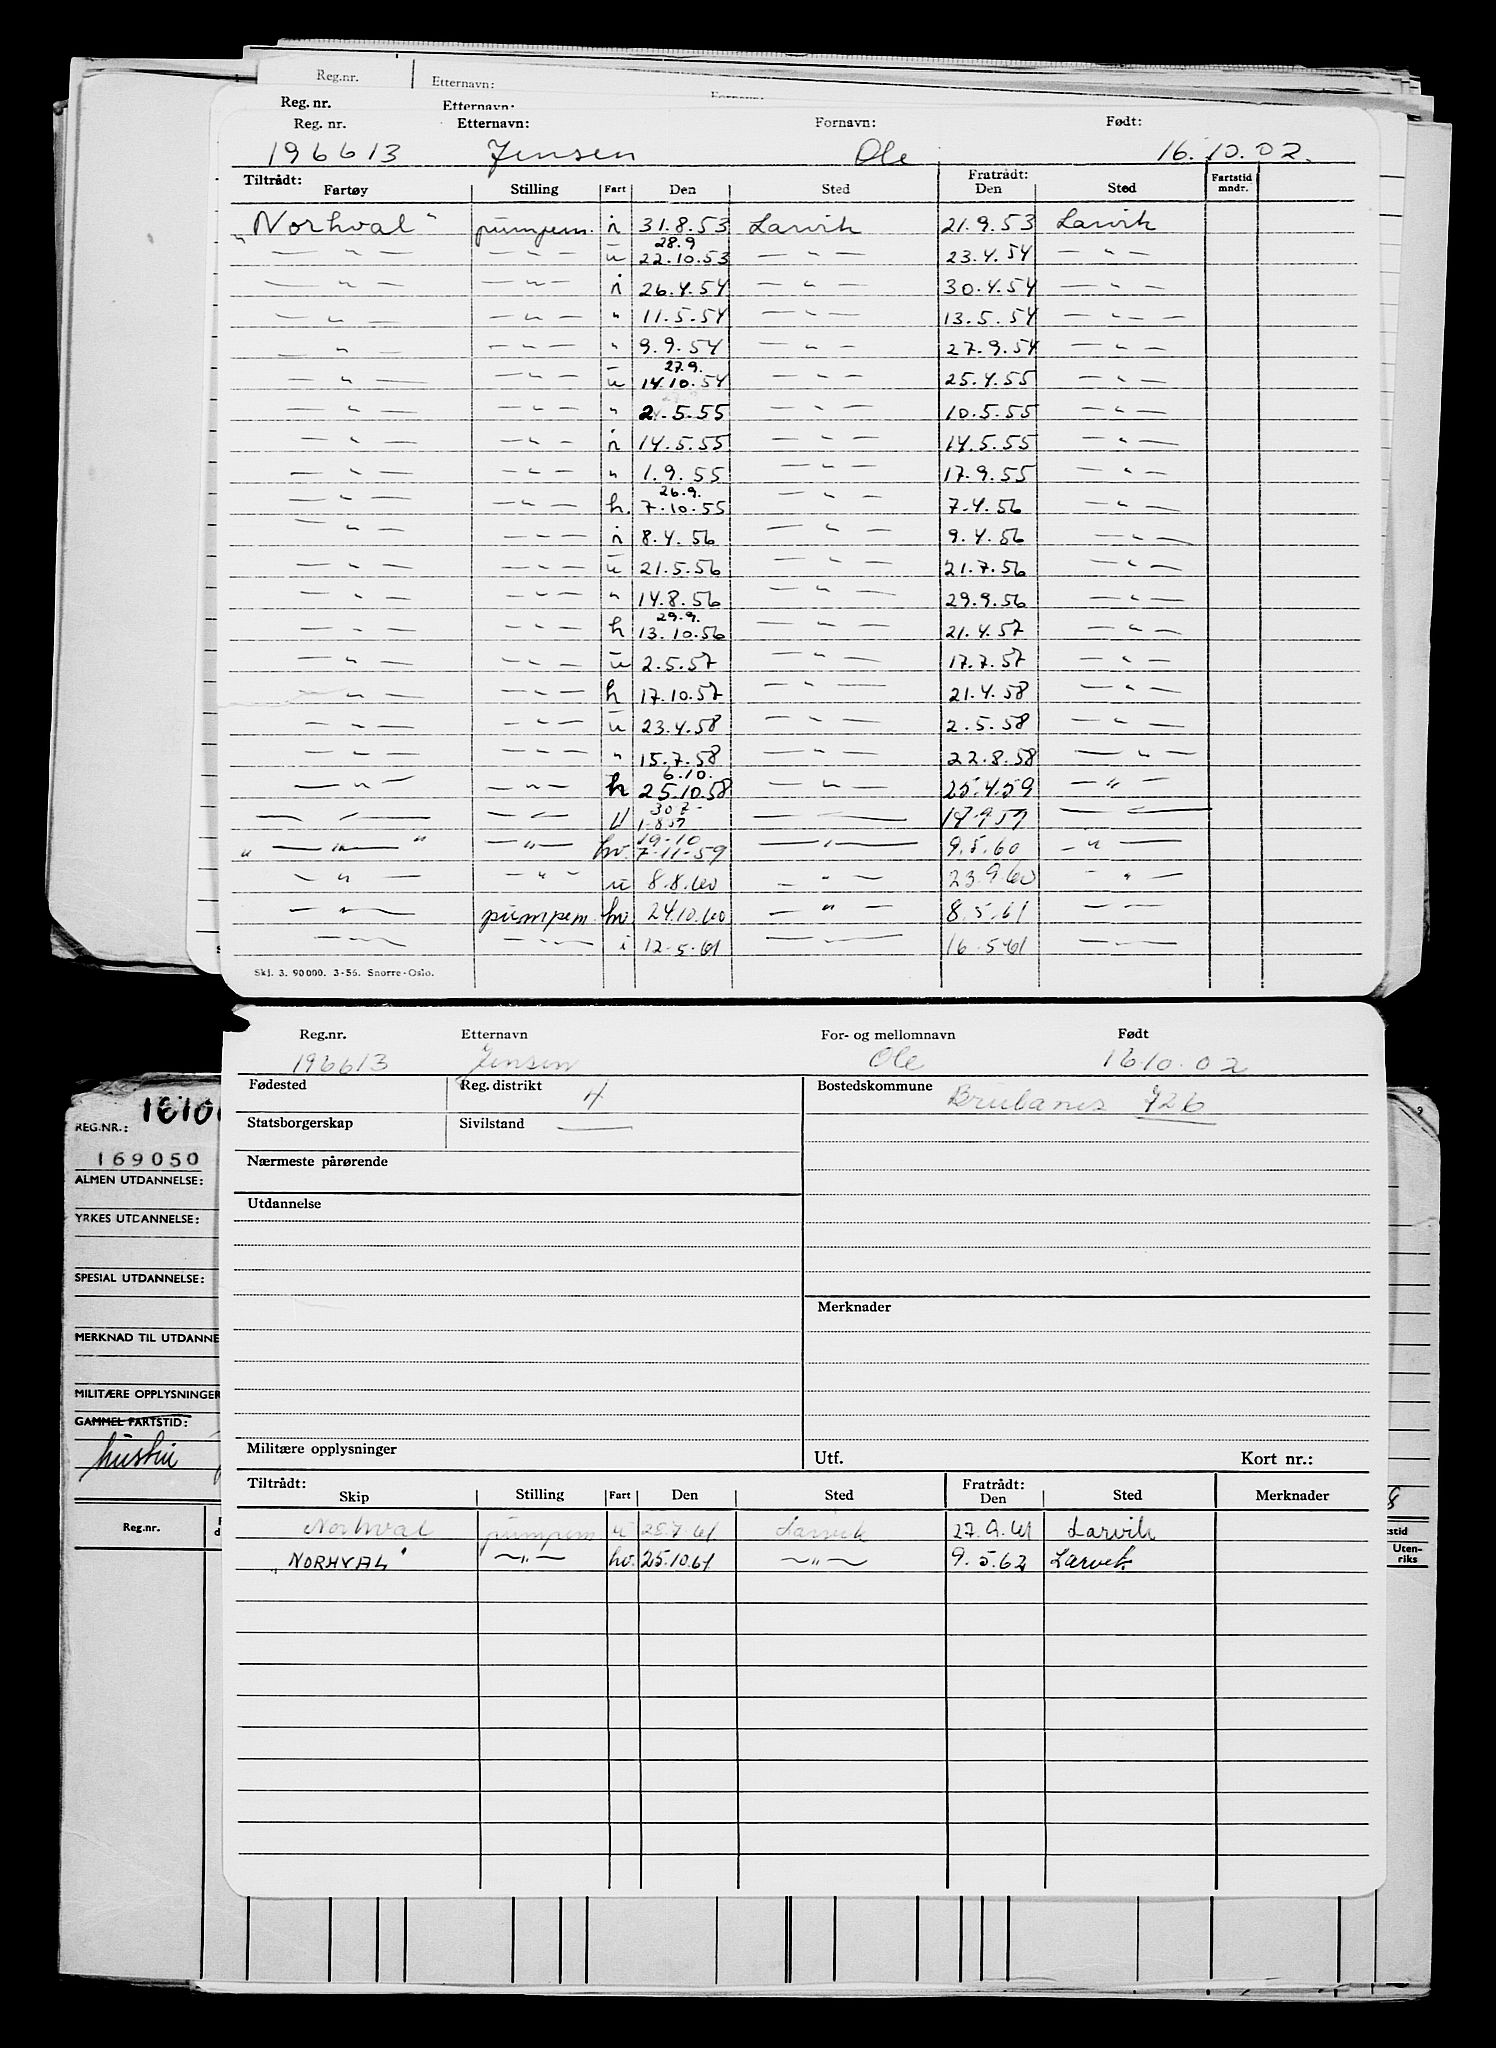 Reg.nr. Etternavn:
Reg. nr. Etternavn:
Reg. nr. Etternavn: Fornavn: Født:
196613 Jensen Ole 16.10.02.
Tiltrådt: Fratrådt:
Fartøy Stilling Fart Den Sted Den Sted Fartstid mndr.
"Norhval" pumpem. i 31.8.53 Larvik 21.9.53 Larvik
— " — — " — u 28.9 22.10.53 — " — 23.4.54 — " —
— " — — " — i 26.4.54 — " — 30.4.54 — " —
— " — — " — " 11.5.54 — " — 13.5.54 — " —
— " — — " — " 9.9.54 — " — 27.9.54 — " —
— " — — " — u 27.9. 14.10.54 — " — 25.4.55 — " —
— " — — " — " 2.5.55 — " — 10.5.55 — " —
— " — — " — i 14.5.55 — " — 14.5.55 — " —
— " — — " — " 1.9.55 — " — 17.9.55 — " —
— " — — " — h. 26.9. 7.10.55 — " — 7.4.56 — " —
— " — — " — i 8.4.56 — " — 9.4.56 — " —
— " — — " — u 21.5.56 — " — 21.7.56 — " —
— " — — " — " 14.8.56 — " — 29.9.56 — " —
— " — — " — h 29.9. 13.10.56 — " — 21.4.57 — " —
— " — — " — u 2.5.57 — " — 17.7.57 — " —
— " — — " — h 17.10.57 — " — 21.4.58 — " —
— " — — " — u 23.4.58 — " — 2.5.58 — " —
— " — — " — " 15.7.58 — " — 22.8.58 — " —
— " — — " — h 6.10. 25.10.58 — " — 25.4.59 — " —
— " — — " — U 1-8 59 — " — 17-9 59 — " —
" — " — " — " — hv. 19-10 7-11-59 — " — 9.5.60 — " —
— " — — " — u 8.8.60 — " — 23.9.60 — " —
— " — pumpem. hv. 24.10.60 — " — 8.5.61 — " —
— " — — " — i 12-5-61 — " — 16-5-61 — " —
Skj. 3. 90000. 3-56. Snorre-Oslo.
Reg.nr. Etternavn For- og mellomnavn Født
196613 Jensen Ole 16.10.02
Fødested Reg. distrikt 4 Bostedskommune
Brunlanes 726
Statsborgerskap Sivilstand —
Nærmeste pårørende
Utdannelse
Merknader
Militære opplysninger Utf. Kort nr.:
Tiltrådt: Fratrådt:
Skip Stilling Fart Den Sted Den Sted Merknader
Norhval pumpem u 25.7.61 Larvik 27.9.61 Larvik
"NORHVAL" — " — hv. 25.10.61 — " — 9.5.62 Larvik
REG.NR.:
169050
ALMEN UTDANNELSE:
YRKES UTDANNELSE:
SPESIAL UTDANNELSE:
MERKNAD TIL UTDANNE
MILITÆRE OPPLYSNINGER
GAMMEL FARTSTID:
hustru
Reg.nr.
stid
Uten-
riks